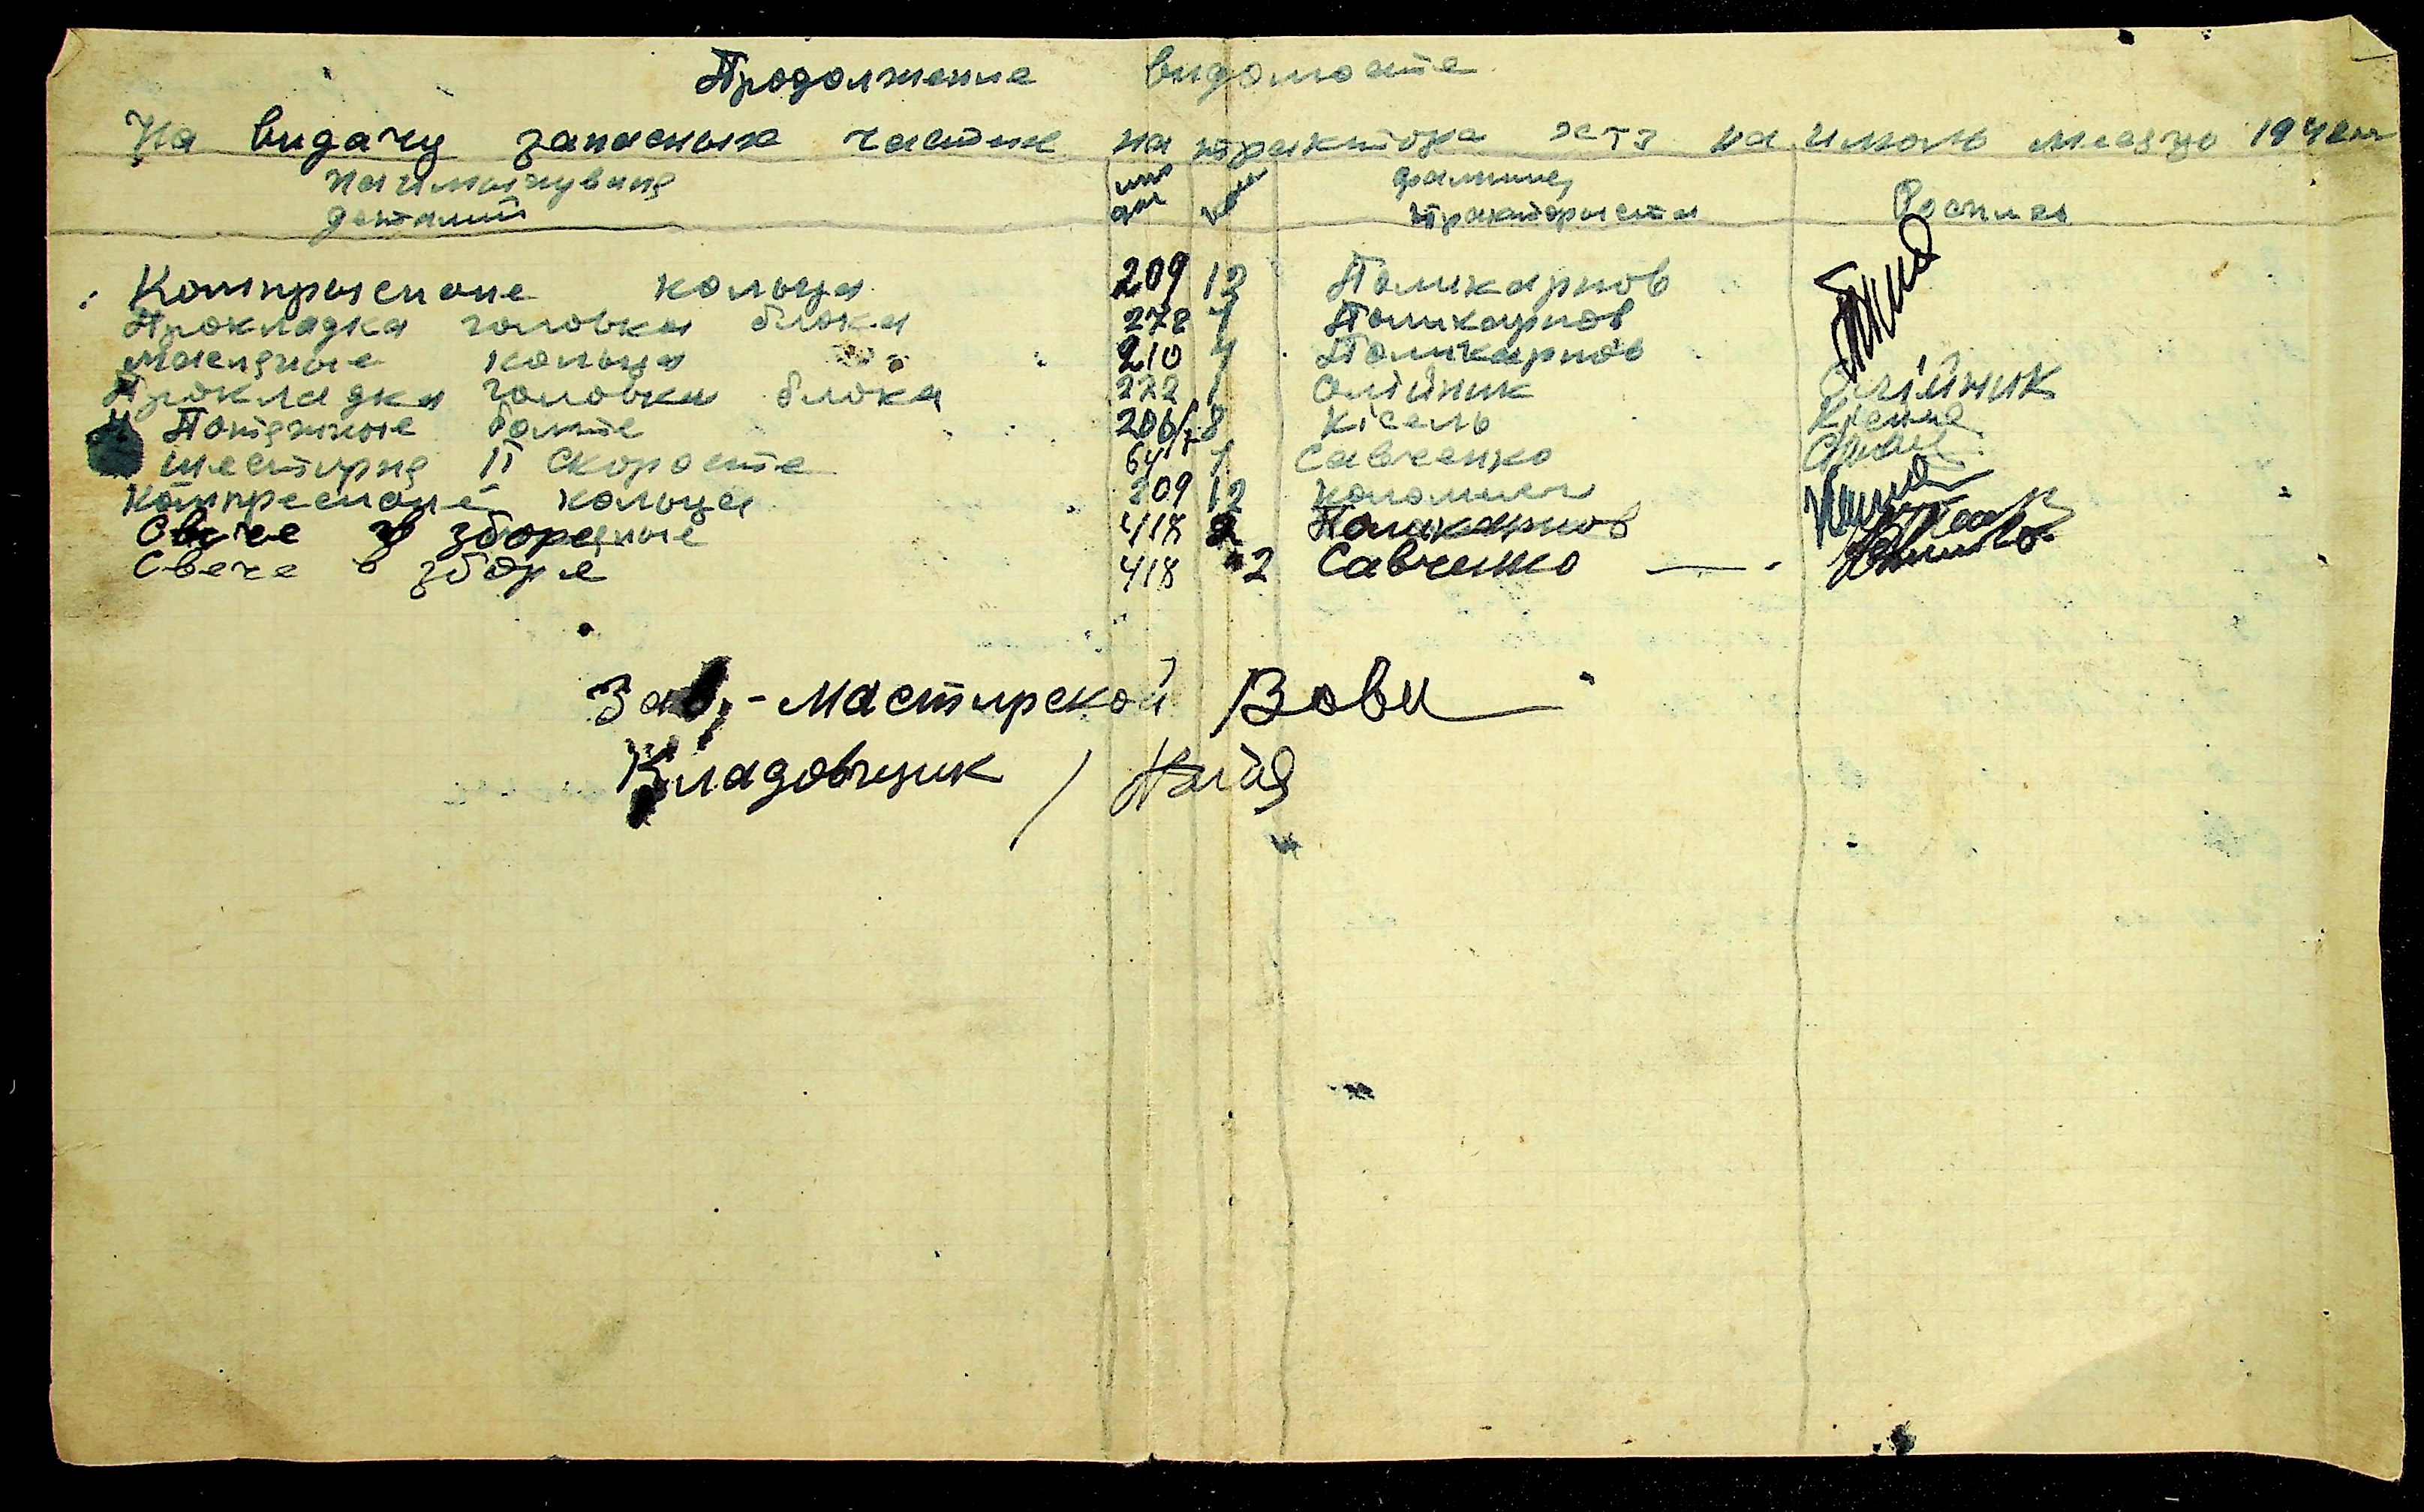 Продолжение видомосте
На видачу запасных частин на трактора ХТЗ на июль месяцо
наименування деталий фамилие тракториста Роспись
Компрысионе кольца 209 12 Поликарпов
Прокладка головки блока 272 1 Поликарпов
Маслярные кольца 210 4 Поликарпов
Прокладка головки блока 272 1 Олійник Олійник
Потяжные болте 206/7 8 Кісель
Шестирня II скоросте 64 1 Савченко
Компресионе кольца 209 12 Коломиец
Свече в зборе 418 2 Поликарпов
Свече в зборе 418 2 Савченко
Зав,-Мастирской Вови
Кладовщик /